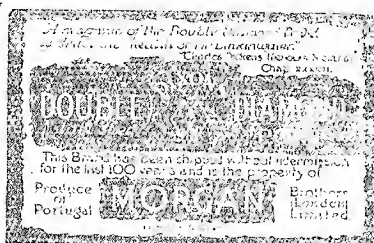 "A magnum of the Double Diamond
Charles Dickens Nicholas Nickleby
Chap. XXXVII.
DOUBLE DIAMOND
This Brand has been shipped without intermission
for the last 100 years and is the property of
Produce of Portugal
MORGAN
Brothers (London) Limited